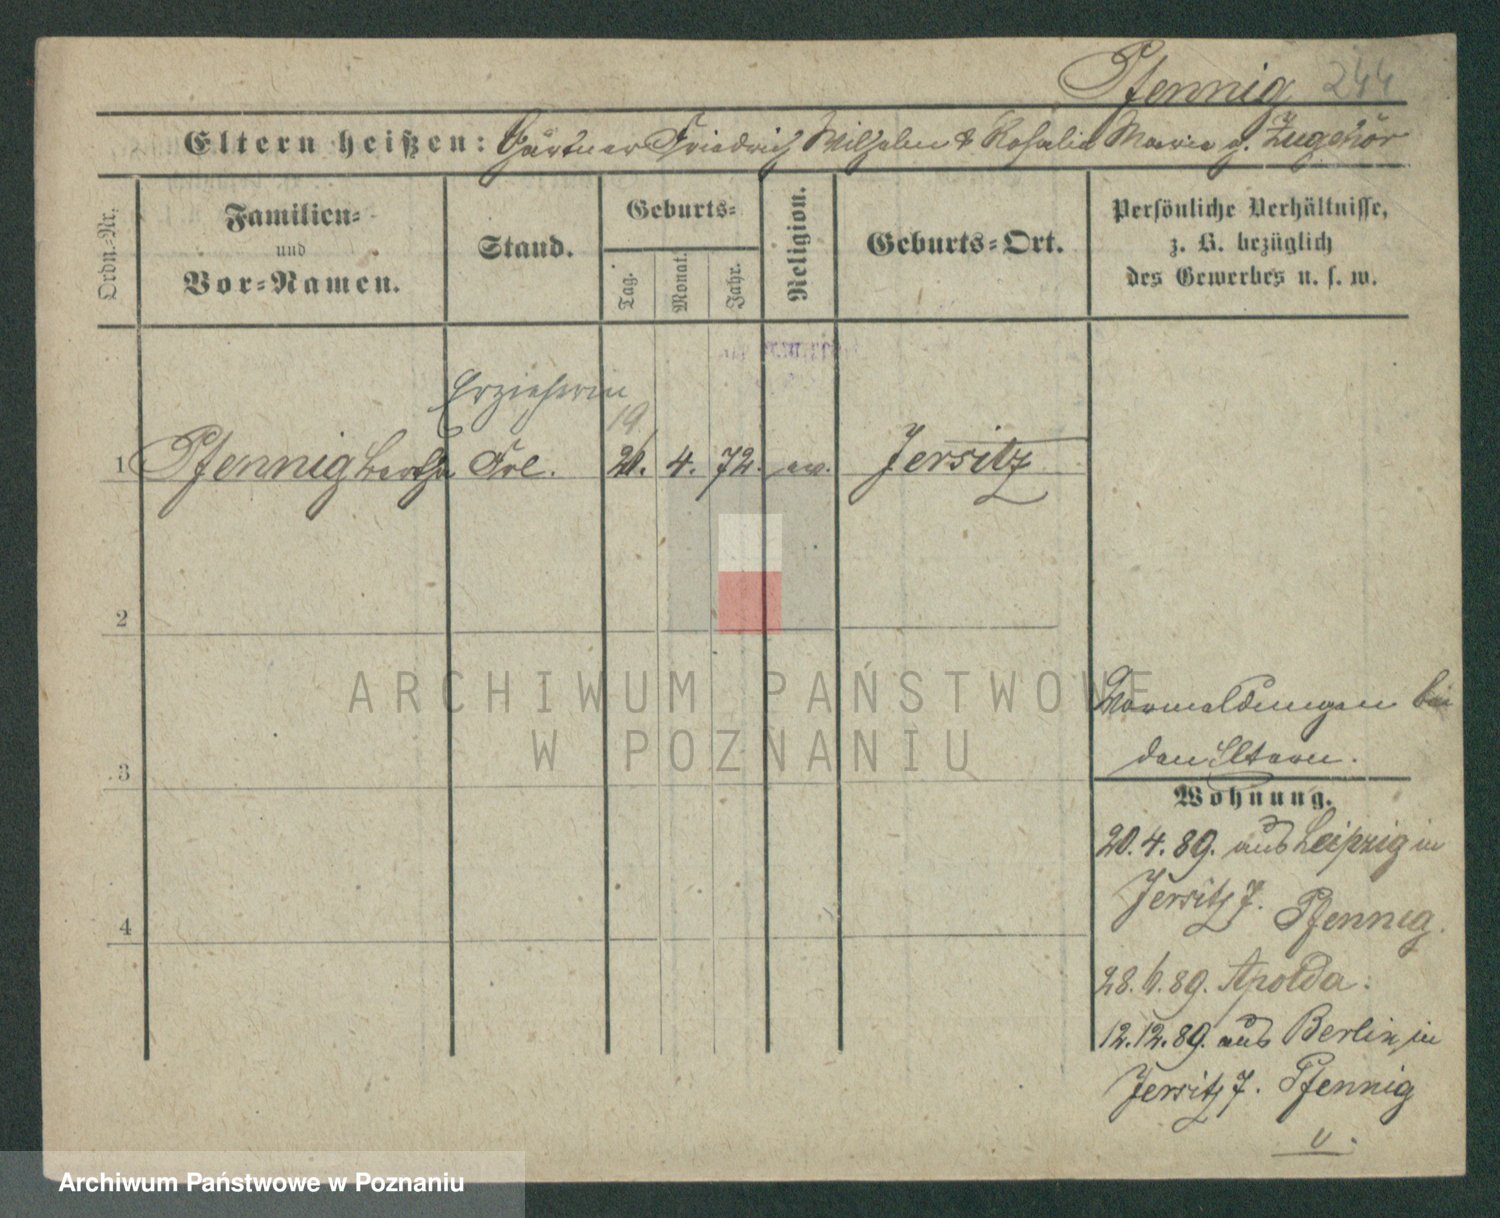 Pfennig 244
Eltern heißen: Gärtner Friedrich Wilhelm & Rosalie Marie g. Zugehör
Ordn.-Nr.
Familien-
und
Vor-Namen.
Stand.
Geburts-
Tag.
Monat.
Jahr.
Religion.
Geburts-Ort.
Persönliche Verhältnisse,
z. B. bezüglich
des Gewerbes u. s. w.
Erzieherin
19.
1 Pfennig Bertha Frl. 4. 72. ev. Jersitz
2
3
4
ARCHIWUM PAŃSTWOWE
W POZNANIU
bei
den Eltern.
Wohnung.
20.4.89. aus Leipzig in
Jersitz 7. Pfennig.
28.6.89. Apolda.
12.12.89. aus Berlin in
Jersitz 7. Pfennig
v.
Archiwum Państwowe w Poznaniu